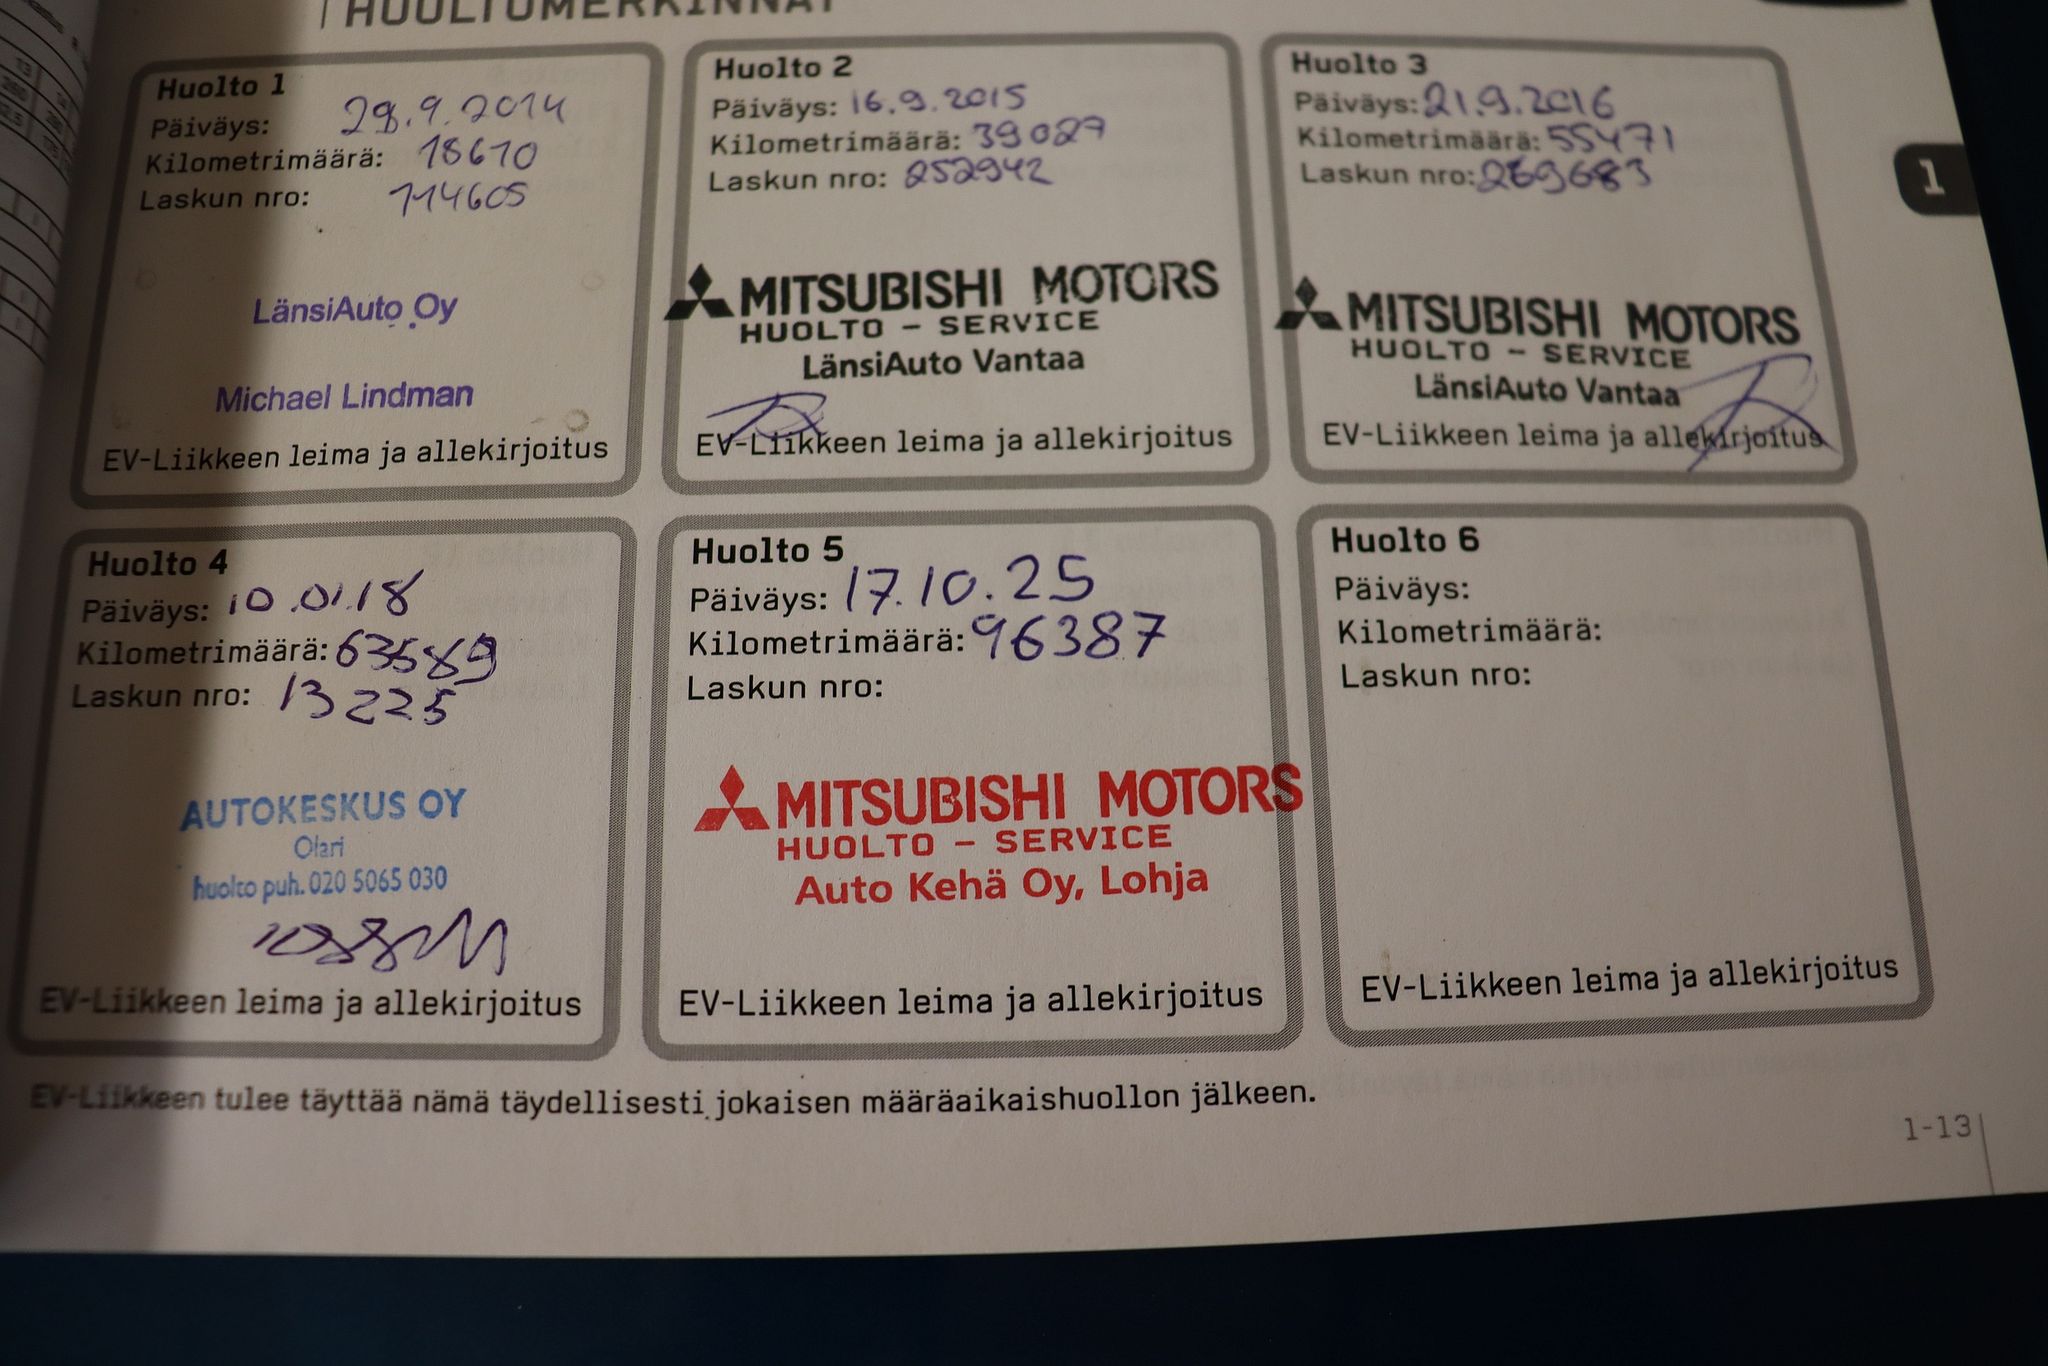 HUOLTOMERKINNÄT
Huolto 1
Päiväys: 29.9.2014
Kilometrimäärä: 18610
Laskun nro: 114605
LänsiAuto Oy
Michael Lindman
EV-Liikkeen leima ja allekirjoitus
Huolto 2
Päiväys: 16.9.2015
Kilometrimäärä: 39027
Laskun nro: 252942
MITSUBISHI MOTORS
HUOLTO - SERVICE
LänsiAuto Vantaa
EV-Liikkeen leima ja allekirjoitus
Huolto 3
Päiväys: 21.9.2016
Kilometrimäärä: 55471
Laskun nro: 269683
MITSUBISHI MOTORS
HUOLTO - SERVICE
LänsiAuto Vantaa
EV-Liikkeen leima ja allekirjoitus
1
Huolto 4
Päiväys: 10.01.18
Kilometrimäärä: 63589
Laskun nro: 13225
AUTOKESKUS OY
Olari
huolto puh. 020 5065 030
EV-Liikkeen leima ja allekirjoitus
Huolto 5
Päiväys: 17.10.25
Kilometrimäärä: 96387
Laskun nro:
MITSUBISHI MOTORS
HUOLTO - SERVICE
Auto Kehä Oy, Lohja
EV-Liikkeen leima ja allekirjoitus
Huolto 6
Päiväys:
Kilometrimäärä:
Laskun nro:
EV-Liikkeen leima ja allekirjoitus
EV-Liikkeen tulee täyttää nämä täydellisesti jokaisen määräaikaishuollon jälkeen.
1-13